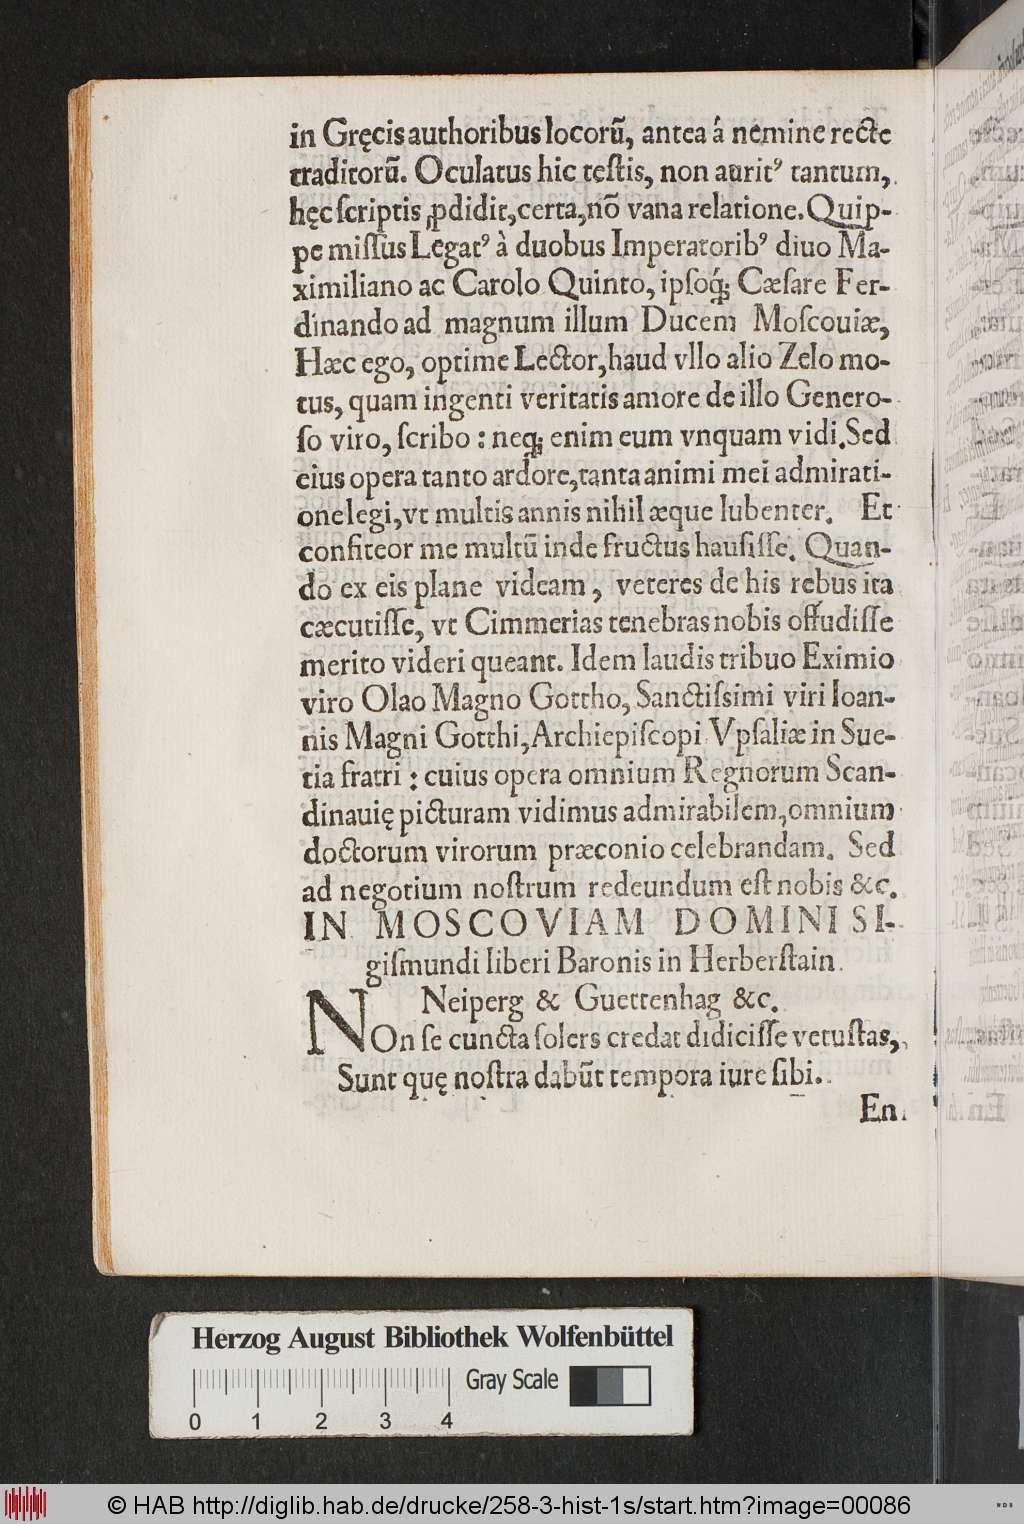 in Gręcis authoribus locorū, antea á nemine recte
traditorū. Oculatus hic testis, non aurit⁹ tantum,
hęc scriptis ꝓdidit, certa, nō vana relatione. Quip-
pe missus Legat⁹ à duobus Imperatorib⁹ diuo Ma-
ximiliano ac Carolo Quinto, ipsoq́; Cæsare Fer-
dinando ad magnum illum Ducem Moscouiæ,
Hæc ego, optime Lector, haud vllo alio Zelo mo-
tus, quam ingenti veritatis amore de illo Genero-
so viro, scribo : neq; enim eum vnquam vidi. Sed
eius opera tanto ardore, tanta animi mei admirati-
one legi, vt multis annis nihil æque lubenter. Et
confiteor me multū inde fructus hausisse. Quan-
do ex eis plane videam, veteres de his rebus ita
cæcutisse, vt Cimmerias tenebras nobis offudisse
merito videri queant. Idem laudis tribuo Eximio
viro Olao Magno Gottho, Sanctissimi viri Ioan-
nis Magni Gotthi, Archiepiscopi Vpsaliæ in Sue-
tia fratri : cuius opera omnium Regnorum Scan-
dinauię picturam vidimus admirabilem, omnium
doctorum virorum præconio celebrandam. Sed
ad negotium nostrum redeundum est nobis &c.
IN MOSCOVIAM DOMINI SI-
gismundi liberi Baronis in Herberstain.
Neiperg & Guettenhag &c.
NOn se cuncta solers credat didicisse vetustas,
Sunt quę nostra dabūt tempora iure sibi.
En
Herzog August Bibliothek Wolfenbüttel
Gray Scale
0 1 2 3 4
© HAB http://diglib.hab.de/drucke/258-3-hist-1s/start.htm?image=00086